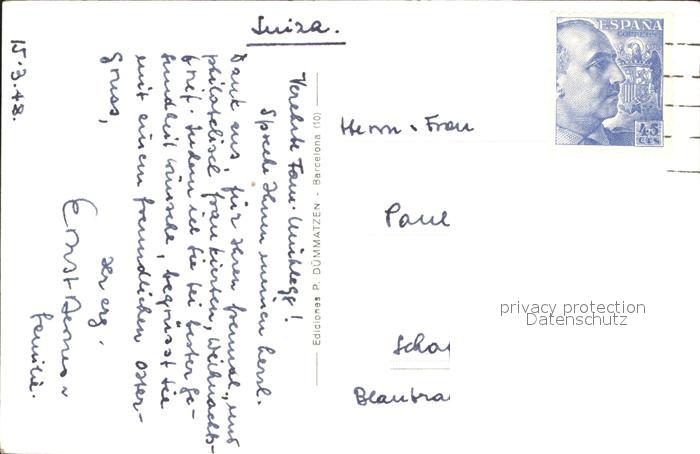 Suiza.
15.3.48.
Verehrte Fam.
Spreche Ihnen meinen herzl.
Dank aus, für Ihren freundl., und
philatelisch frankierten, Weihnachts-
brief. Indem ich Sie bei bester Ge-
sundheit wünsche, begrüsst Sie
mit einem freundlichen Oster-
Gruss,
Ihr erg.
Ernst
Familie.
Ediciones P. DÜMMATZEN - Barcelona (10)
ESPAÑA
CORREOS
45
CTS
Herrn u. Frau
Paul
Scha
Blautra
privacy protection
Datenschutz